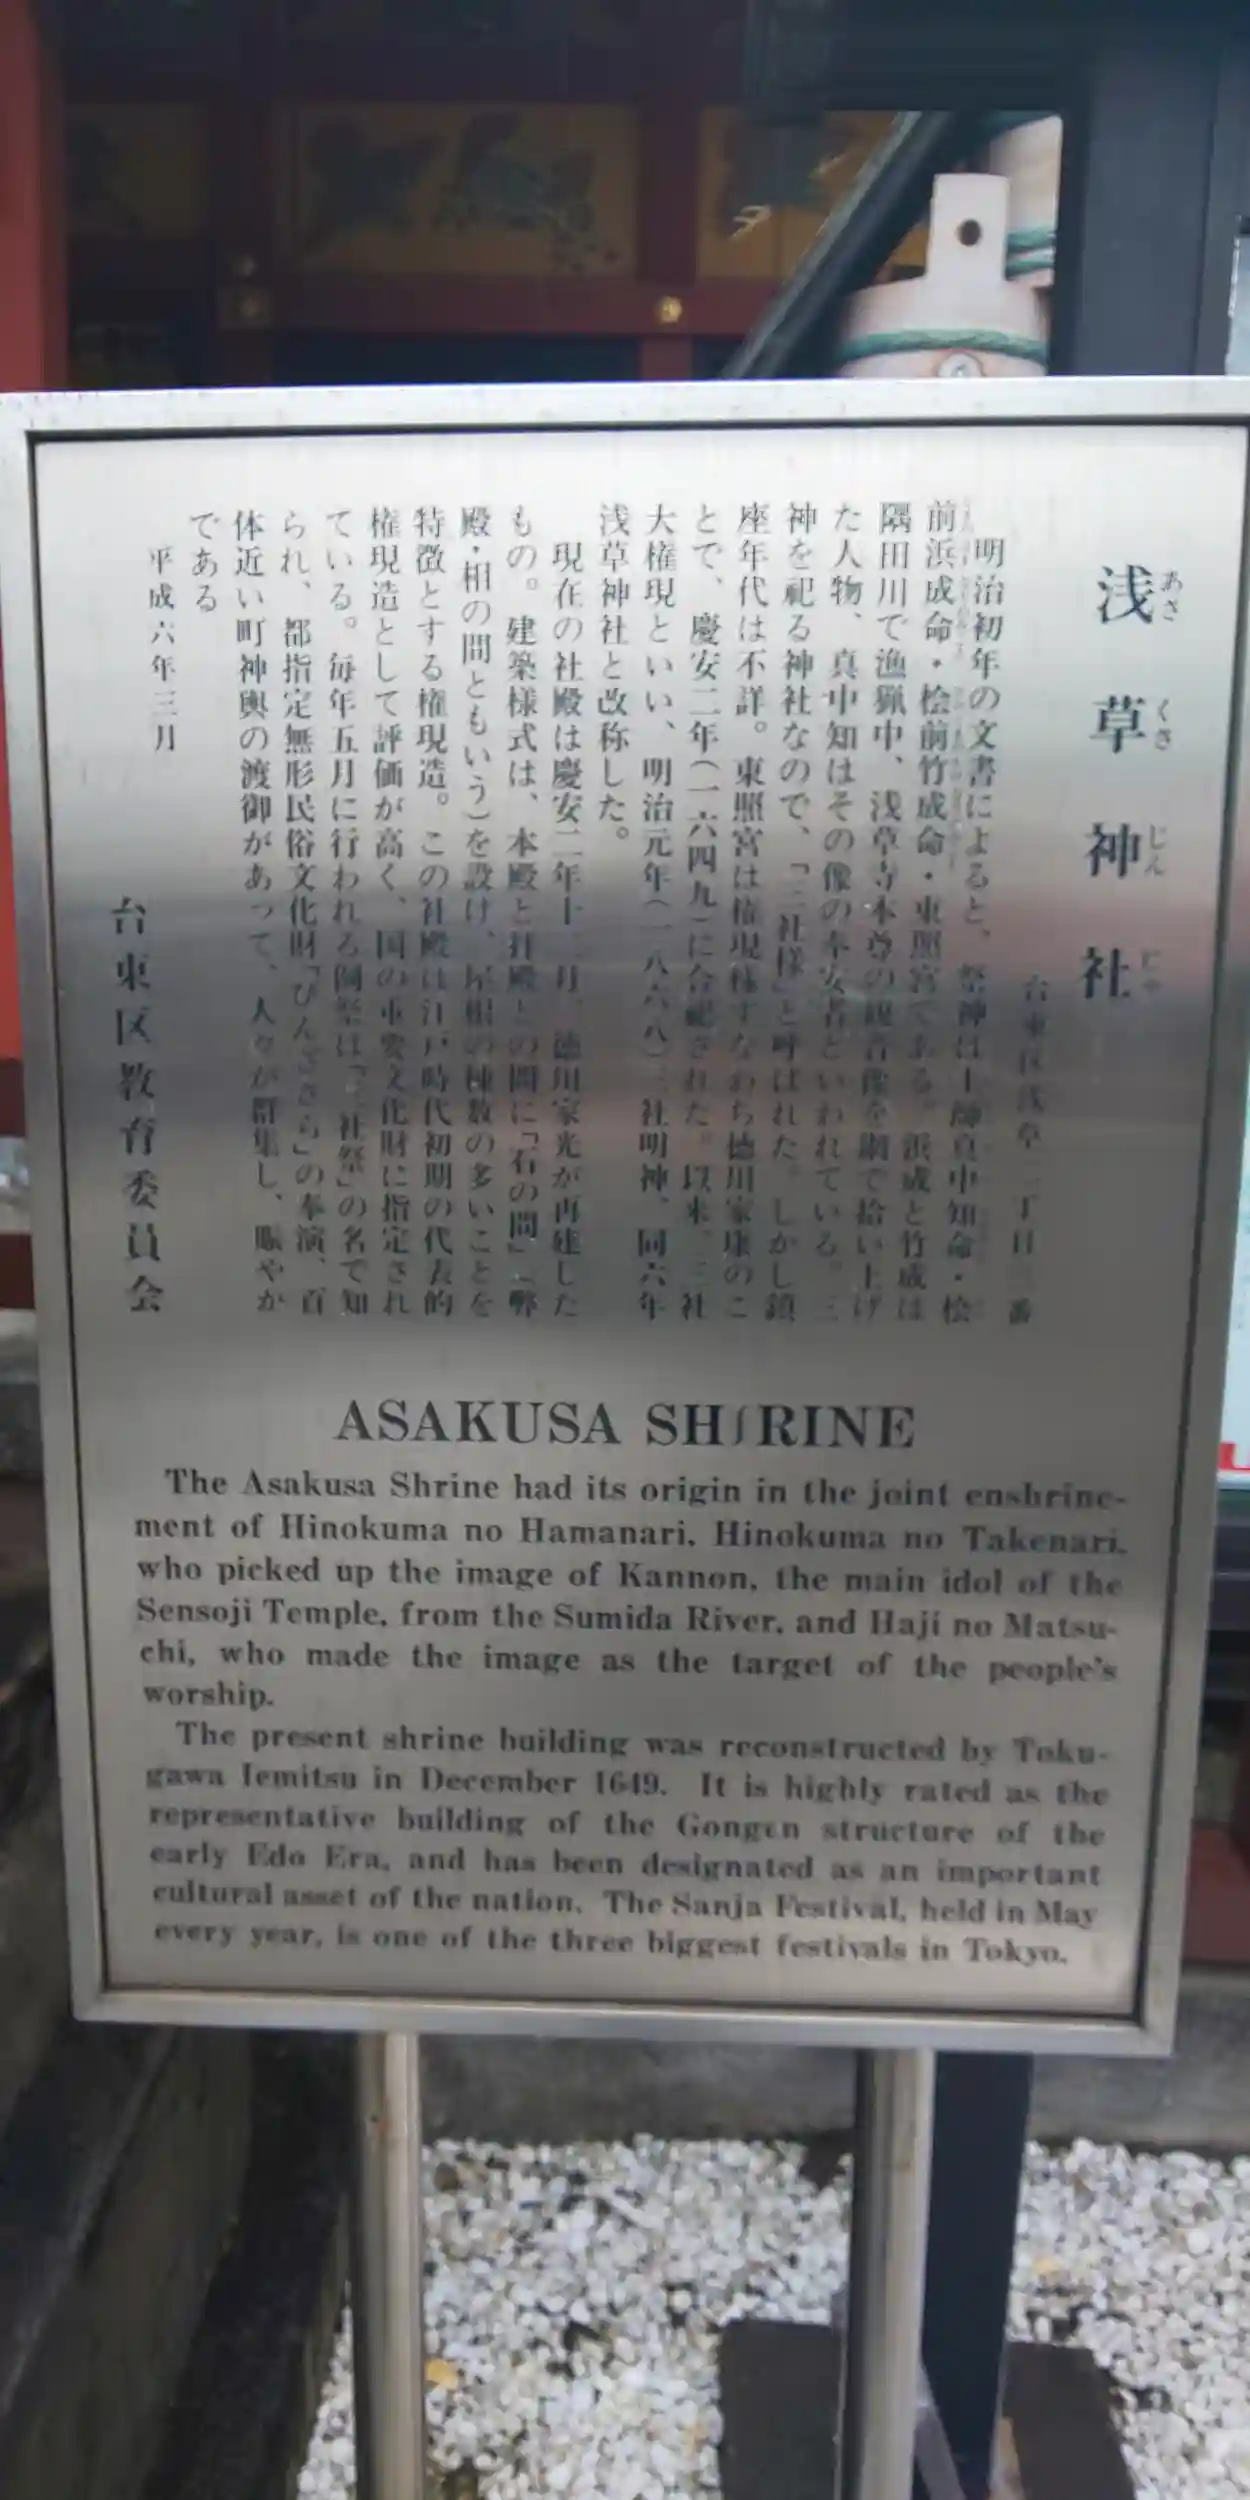 浅草神社
あさ くさ じん じゃ
台東区浅草二丁目三番
明治初年の文書によると、祭神は土師真中知命・桧
前浜成命・桧前竹成命・東照宮である。浜成と竹成は
隅田川で漁猟中、浅草寺本尊の観音像を網で拾い上げ
た人物、真中知はその像の奉安者といわれている。三
神を祀る神社なので、「三社様」と呼ばれた。しかし鎮
座年代は不詳。東照宮は権現様すなわち徳川家康のこ
とで、慶安二年(一六四九)に合祀された。以来、三社
大権現といい、明治元年(一八六八)三社明神、同六年
浅草神社と改称した。
現在の社殿は慶安二年十二月、徳川家光が再建した
もの。建築様式は、本殿と拝殿との間に「石の間」(弊
殿・相の間ともいう)を設け、屋根の棟数の多いことを
特徴とする権現造。この社殿は江戸時代初期の代表的
権現造として評価が高く、国の重要文化財に指定され
ている。毎年五月に行われる例祭は「三社祭」の名で知
られ、都指定無形民俗文化財「びんざさら」の奉演、百
体近い町神輿の渡御があって、人々が群集し、賑やか
である
平成六年三月
台東区教育委員会
ASAKUSA SH∫RINE
The Asakusa Shrine had its origin in the joint enshrine-
ment of Hinokuma no Hamanari, Hinokuma no Takenari,
who picked up the image of Kannon, the main idol of the
Sensoji Temple, from the Sumida River, and Haji no Matsu-
chi, who made the image as the target of the people's
worship.
The present shrine building was reconstructed by Toku-
gawa Iemitsu in December 1649. It is highly rated as the
representative building of the Gongen structure of the
early Edo Era, and has been designated as an important
cultural asset of the nation. The Sanja Festival, held in May
every year, is one of the three biggest festivals in Tokyo.